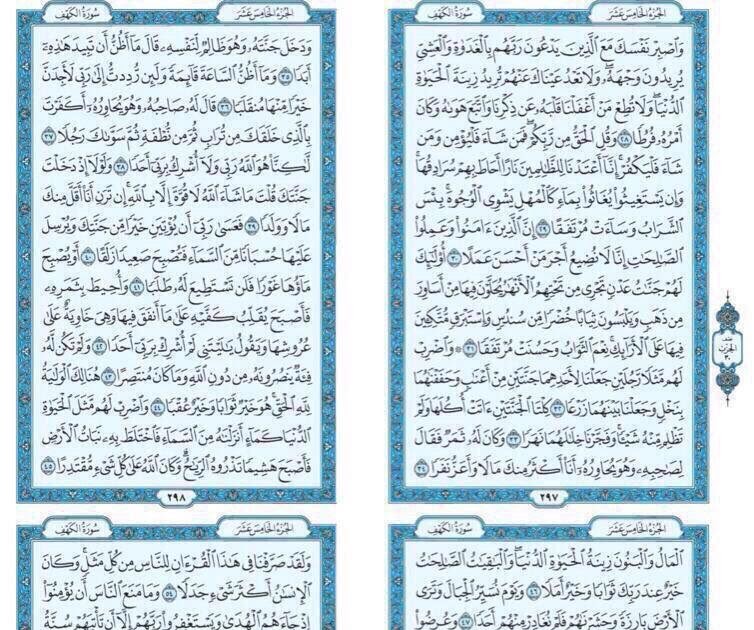 الجُزْءُ الخَامِسَ عَشَرَ سُورَةُ الكَهْفِ
وَٱصْبِرْ نَفْسَكَ مَعَ ٱلَّذِينَ يَدْعُونَ رَبَّهُم بِٱلْغَدَوٰةِ وَٱلْعَشِيِّ
يُرِيدُونَ وَجْهَهُۥ ۖ وَلَا تَعْدُ عَيْنَاكَ عَنْهُمْ تُرِيدُ زِينَةَ ٱلْحَيَوٰةِ
ٱلدُّنْيَا ۖ وَلَا تُطِعْ مَنْ أَغْفَلْنَا قَلْبَهُۥ عَن ذِكْرِنَا وَٱتَّبَعَ هَوَىٰهُ وَكَانَ
أَمْرُهُۥ فُرُطًا ٢٨ وَقُلِ ٱلْحَقُّ مِن رَّبِّكُمْ ۖ فَمَن شَآءَ فَلْيُؤْمِن وَمَن
شَآءَ فَلْيَكْفُرْ ۚ إِنَّآ أَعْتَدْنَا لِلظَّٰلِمِينَ نَارًا أَحَاطَ بِهِمْ سُرَادِقُهَا ۚ
وَإِن يَسْتَغِيثُوا۟ يُغَاثُوا۟ بِمَآءٍ كَٱلْمُهْلِ يَشْوِى ٱلْوُجُوهَ ۚ بِئْسَ
ٱلشَّرَابُ وَسَآءَتْ مُرْتَفَقًا ٢٩ إِنَّ ٱلَّذِينَ ءَامَنُوا۟ وَعَمِلُوا۟
ٱلصَّٰلِحَٰتِ إِنَّا لَا نُضِيعُ أَجْرَ مَنْ أَحْسَنَ عَمَلًا ٣٠ أُو۟لَٰٓئِكَ
لَهُمْ جَنَّٰتُ عَدْنٍ تَجْرِى مِن تَحْتِهِمُ ٱلْأَنْهَٰرُ يُحَلَّوْنَ فِيهَا مِنْ أَسَاوِرَ
مِن ذَهَبٍ وَيَلْبَسُونَ ثِيَابًا خُضْرًا مِّن سُندُسٍ وَإِسْتَبْرَقٍ مُّتَّكِـِٔينَ
فِيهَا عَلَى ٱلْأَرَآئِكِ ۚ نِعْمَ ٱلثَّوَابُ وَحَسُنَتْ مُرْتَفَقًا ٣١ ۞ وَٱضْرِبْ
لَهُم مَّثَلًا رَّجُلَيْنِ جَعَلْنَا لِأَحَدِهِمَا جَنَّتَيْنِ مِنْ أَعْنَٰبٍ وَحَفَفْنَٰهُمَا
بِنَخْلٍ وَجَعَلْنَا بَيْنَهُمَا زَرْعًا ٣٢ كِلْتَا ٱلْجَنَّتَيْنِ ءَاتَتْ أُكُلَهَا وَلَمْ
تَظْلِم مِّنْهُ شَيْـًٔا ۚ وَفَجَّرْنَا خِلَٰلَهُمَا نَهَرًا ٣٣ وَكَانَ لَهُۥ ثَمَرٌ فَقَالَ
لِصَٰحِبِهِۦ وَهُوَ يُحَاوِرُهُۥٓ أَنَا۠ أَكْثَرُ مِنكَ مَالًا وَأَعَزُّ نَفَرًا ٣٤
٢٩٧
نصف
الحزب
٣٠
الجُزْءُ الخَامِسَ عَشَرَ سُورَةُ الكَهْفِ
وَدَخَلَ جَنَّتَهُۥ وَهُوَ ظَالِمٌ لِّنَفْسِهِۦ قَالَ مَآ أَظُنُّ أَن تَبِيدَ هَٰذِهِۦٓ
أَبَدًا ٣٥ وَمَآ أَظُنُّ ٱلسَّاعَةَ قَآئِمَةً وَلَئِن رُّدِدتُّ إِلَىٰ رَبِّى لَأَجِدَنَّ
خَيْرًا مِّنْهَا مُنقَلَبًا ٣٦ قَالَ لَهُۥ صَاحِبُهُۥ وَهُوَ يُحَاوِرُهُۥٓ أَكَفَرْتَ
بِٱلَّذِى خَلَقَكَ مِن تُرَابٍ ثُمَّ مِن نُّطْفَةٍ ثُمَّ سَوَّىٰكَ رَجُلًا ٣٧
لَّٰكِنَّا۠ هُوَ ٱللَّهُ رَبِّى وَلَآ أُشْرِكُ بِرَبِّىٓ أَحَدًا ٣٨ وَلَوْلَآ إِذْ دَخَلْتَ
جَنَّتَكَ قُلْتَ مَا شَآءَ ٱللَّهُ لَا قُوَّةَ إِلَّا بِٱللَّهِ ۚ إِن تَرَنِ أَنَا۠ أَقَلَّ مِنكَ
مَالًا وَوَلَدًا ٣٩ فَعَسَىٰ رَبِّىٓ أَن يُؤْتِيَنِ خَيْرًا مِّن جَنَّتِكَ وَيُرْسِلَ
عَلَيْهَا حُسْبَانًا مِّنَ ٱلسَّمَآءِ فَتُصْبِحَ صَعِيدًا زَلَقًا ٤٠ أَوْ يُصْبِحَ
مَآؤُهَا غَوْرًا فَلَن تَسْتَطِيعَ لَهُۥ طَلَبًا ٤١ وَأُحِيطَ بِثَمَرِهِۦ
فَأَصْبَحَ يُقَلِّبُ كَفَّيْهِ عَلَىٰ مَآ أَنفَقَ فِيهَا وَهِىَ خَاوِيَةٌ عَلَىٰ
عُرُوشِهَا وَيَقُولُ يَٰلَيْتَنِى لَمْ أُشْرِكْ بِرَبِّىٓ أَحَدًا ٤٢ وَلَمْ تَكُن لَّهُۥ
فِئَةٌ يَنصُرُونَهُۥ مِن دُونِ ٱللَّهِ وَمَا كَانَ مُنتَصِرًا ٤٣ هُنَالِكَ ٱلْوَلَٰيَةُ
لِلَّهِ ٱلْحَقِّ ۚ هُوَ خَيْرٌ ثَوَابًا وَخَيْرٌ عُقْبًا ٤٤ وَٱضْرِبْ لَهُم مَّثَلَ ٱلْحَيَوٰةِ
ٱلدُّنْيَا كَمَآءٍ أَنزَلْنَٰهُ مِنَ ٱلسَّمَآءِ فَٱخْتَلَطَ بِهِۦ نَبَاتُ ٱلْأَرْضِ
فَأَصْبَحَ هَشِيمًا تَذْرُوهُ ٱلرِّيَٰحُ ۗ وَكَانَ ٱللَّهُ عَلَىٰ كُلِّ شَىْءٍ مُّقْتَدِرًا ٤٥
٢٩٨
الجُزْءُ الخَامِسَ عَشَرَ سُورَةُ الكَهْفِ
ٱلْمَالُ وَٱلْبَنُونَ زِينَةُ ٱلْحَيَوٰةِ ٱلدُّنْيَا ۖ وَٱلْبَٰقِيَٰتُ ٱلصَّٰلِحَٰتُ
خَيْرٌ عِندَ رَبِّكَ ثَوَابًا وَخَيْرٌ أَمَلًا ٤٦ وَيَوْمَ نُسَيِّرُ ٱلْجِبَالَ وَتَرَى
ٱلْأَرْضَ بَارِزَةً وَحَشَرْنَٰهُمْ فَلَمْ نُغَادِرْ مِنْهُمْ أَحَدًا ٤٧ وَعُرِضُوا۟
الجُزْءُ الخَامِسَ عَشَرَ سُورَةُ الكَهْفِ
وَلَقَدْ صَرَّفْنَا فِى هَٰذَا ٱلْقُرْءَانِ لِلنَّاسِ مِن كُلِّ مَثَلٍ ۚ وَكَانَ
ٱلْإِنسَٰنُ أَكْثَرَ شَىْءٍ جَدَلًا ٥٤ وَمَا مَنَعَ ٱلنَّاسَ أَن يُؤْمِنُوٓا۟
إِذْ جَآءَهُمُ ٱلْهُدَىٰ وَيَسْتَغْفِرُوا۟ رَبَّهُمْ إِلَّآ أَن تَأْتِيَهُمْ سُنَّةُ